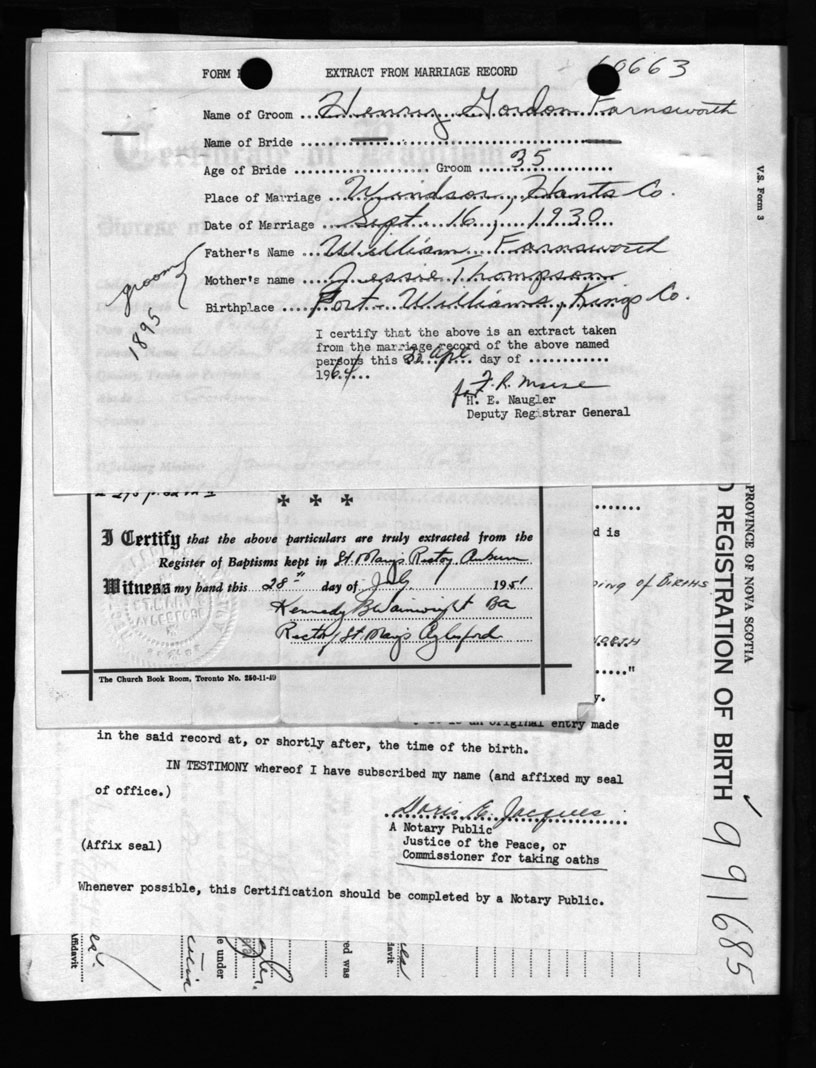 FORM EXTRACT FROM MARRIAGE RECORD 60663
Name of Groom Henry Gordon Farnsworth
Name of Bride
Age of Bride Groom 35
Place of Marriage Windsor, Hants Co.
Date of Marriage Sept. 16, 1930
Father's Name William Farnsworth
Mother's name Jessie Thompson
Birthplace Port Williams, Kings Co.
groom
1895
I certify that the above is an extract taken
from the marriage record of the above named
persons this 22 Apl day of
1964
for F. R. Morse
H. E. Naugler
Deputy Registrar General
Certificate of Baptism
Diocese of
I Certify that the above particulars are truly extracted from the
Register of Baptisms kept in St. Mary's Rectory Auburn
Witness my hand this 28th day of July 1951
Kennedy B Wainwright Ba
Rector, St. Mary's Aylesford
The Church Book Room, Toronto No. 250-11-49
d is
ing of BIRTHS
"
y.
is an original entry made
in the said record at, or shortly after, the time of the birth.
IN TESTIMONY whereof I have subscribed my name (and affixed my seal
of office.)
Doris E. Jacques
A Notary Public
Justice of the Peace, or
Commissioner for taking oaths
(Affix seal)
Whenever possible, this Certification should be completed by a Notary Public.
V.S. Form 3
PROVINCE OF NOVA SCOTIA
D REGISTRATION OF BIRTH
991685
ffidavit
le under
red was
davit